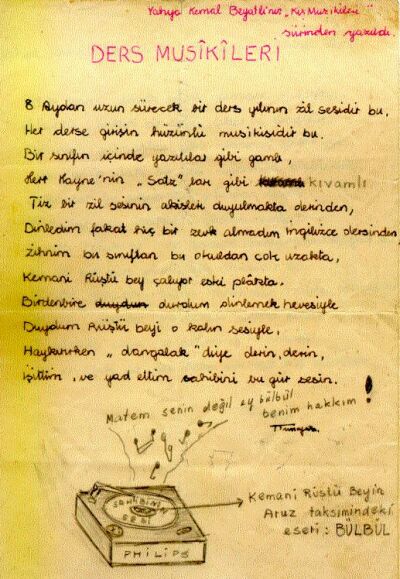 Yahya Kemal Beyatlı'nın „Kar Musikileri"
şiirinden yazıldı.
DERS MUSÎKÎLERİ
8 Aydan uzun sürecek bir ders yılının zil sesidir bu,
Her derse girişin hüzünlü musikisidir bu.
Bir sınıfın içinde yazılılar gibi gamlı,
Herr Hayne'nin „Satz" ları gibi kıvamlı
Tiz bir zil sesinin akisleri duyulmakta derinden,
Dinledim fakat hiç bir zevk almadım İngilizce dersinden
Zihnim bu sınıftan bu okuldan çok uzakta,
Kemani Rüştü bey çalıyor eski plâkta.
Birdenbire duydum durdum dinlemek hevesiyle
Duydum Rüştü beyi o kalın sesiyle,
Haykırırken „ dangalak " diye derin, derin,
İşittim , ve yad ettim sahibini bu gür sesin.
Matem senin değil ey bülbül
benim hakkım !
SAHİBİNİN
SESİ
PHILIPS
Kemani Rüştü Beyin
Aruz taksimindeki
eseri : BÜLBÜL